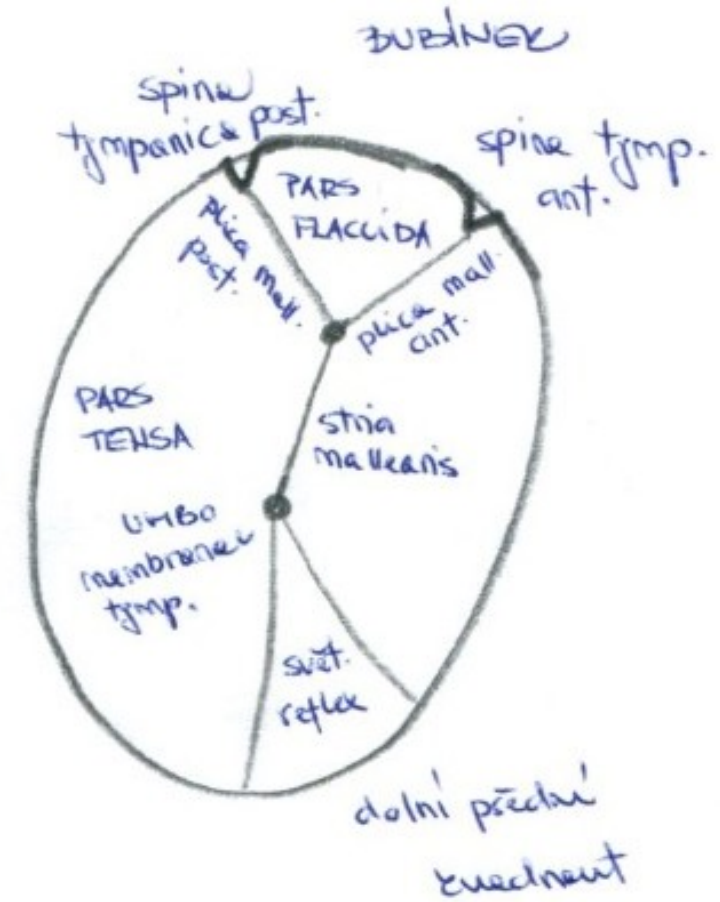 BUBÍNEK
spina
tympanica post.
spina tymp.
ant.
PARS
FLACCIDA
plica mall.
post.
plica mall.
ant.
PARS
TENSA
stria
mallearis
UMBO
membranae
tymp.
svět.
reflex
dolní přední
kvadrant